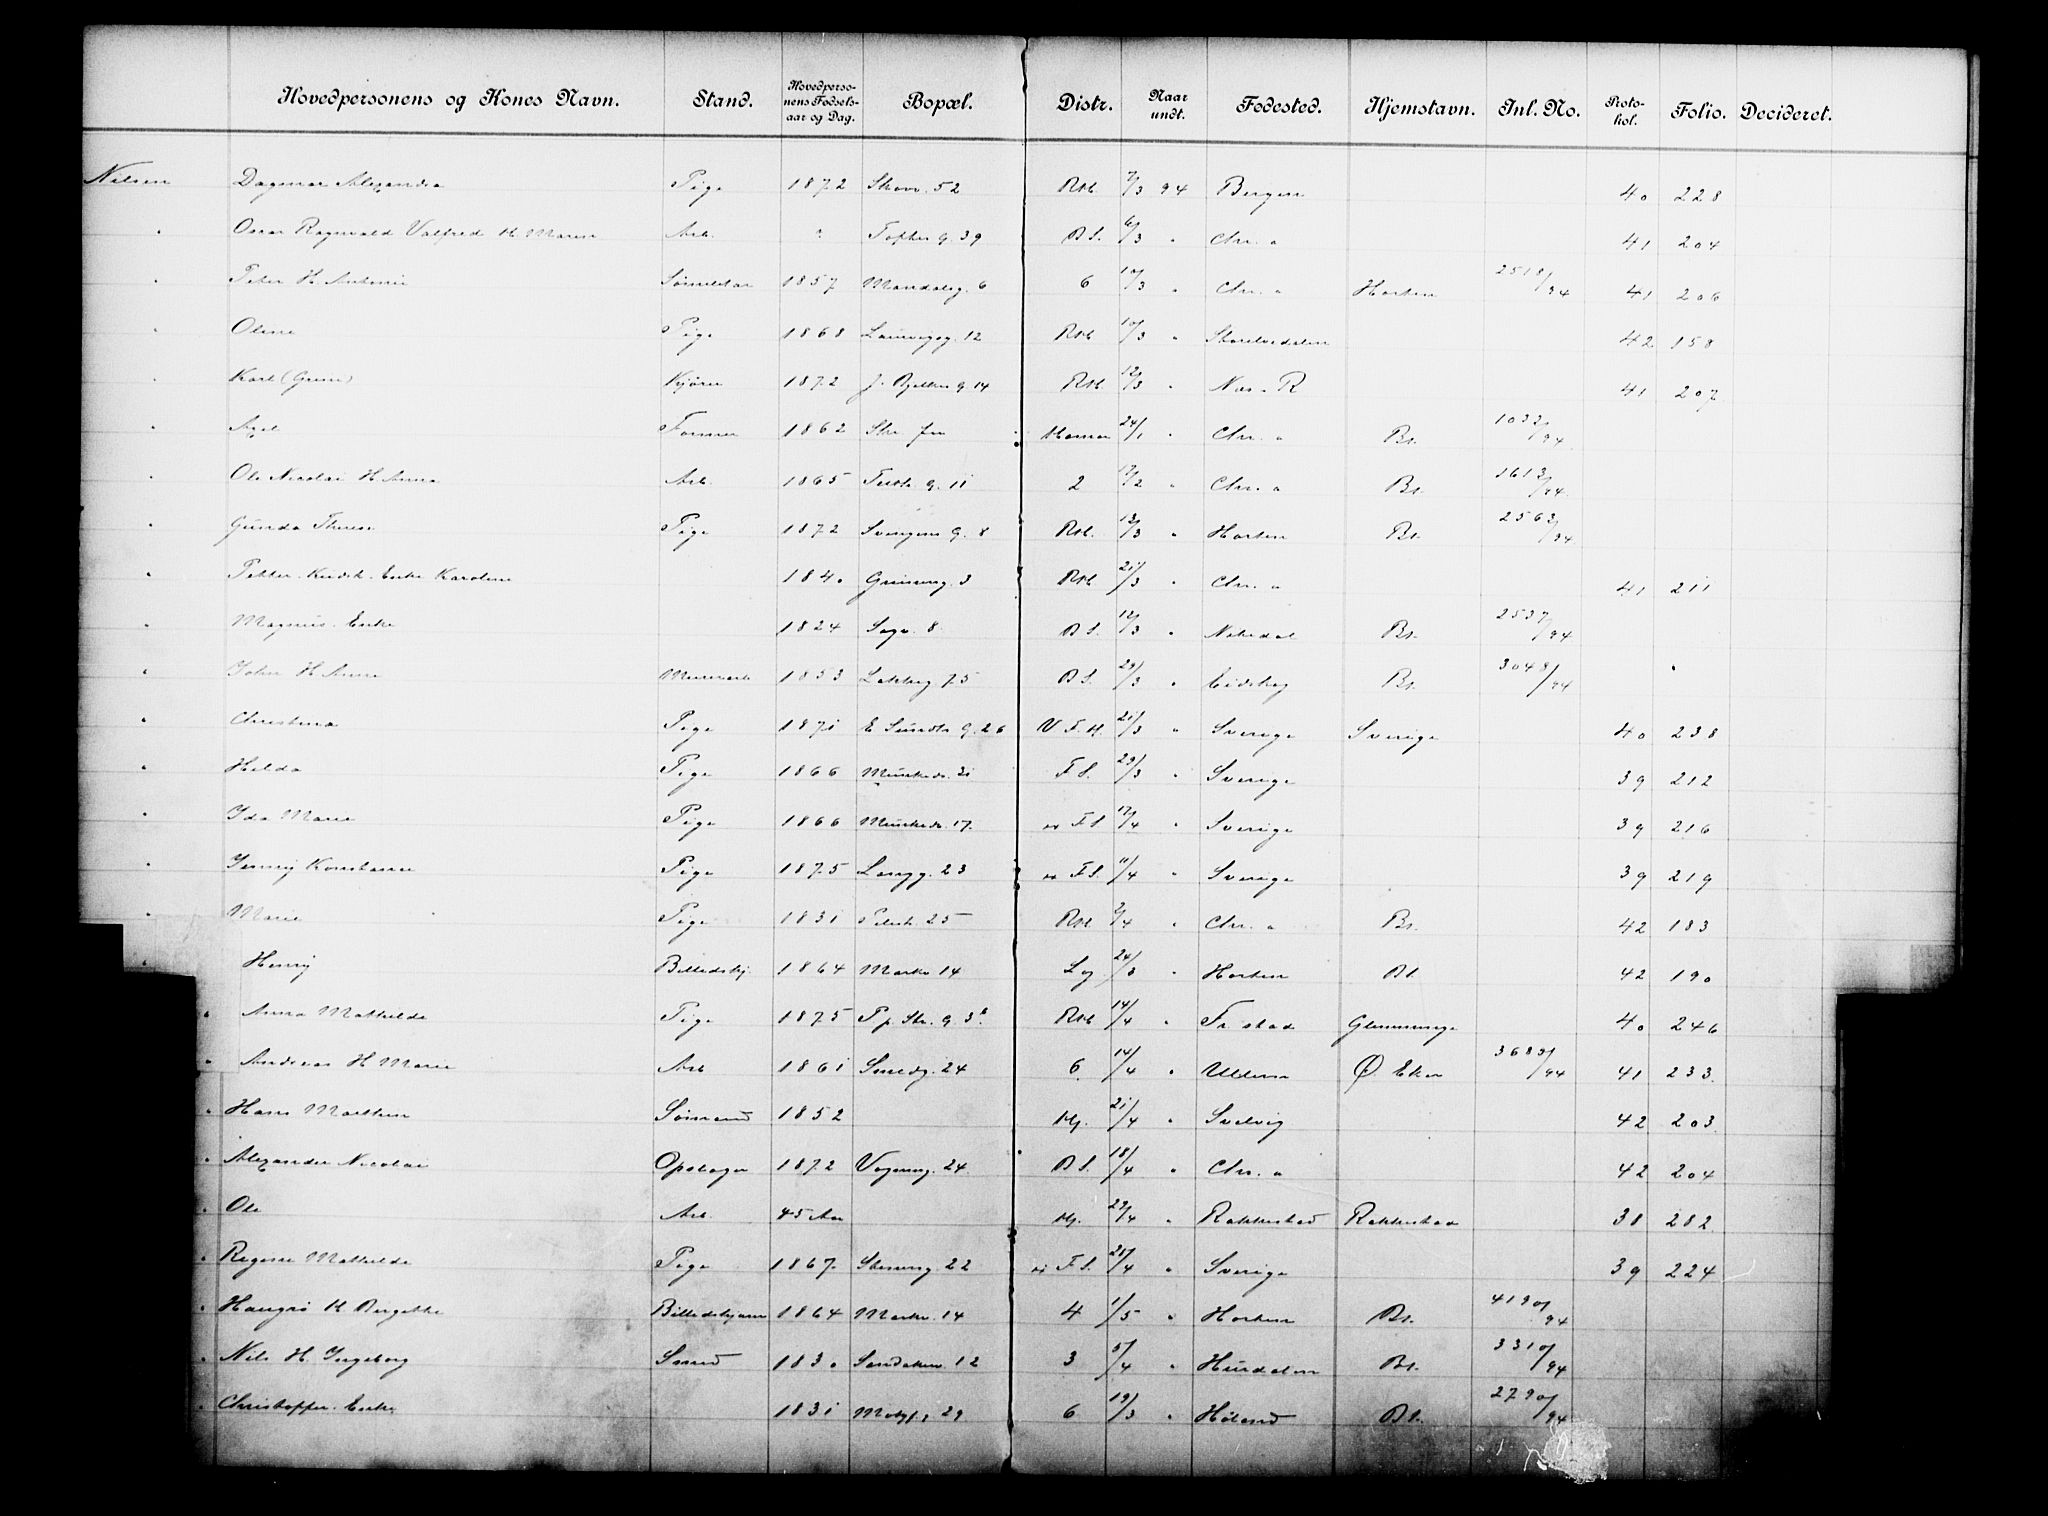 Hovedpersonens og Kones Navn. Stand. Hovedpersonens Fødselsaar og Dag. Bopæl. Distr. Naar undt. Fødested. Hjemstavn. Inl. No. Protokol. Folio. Decideret.
Nilsen Dagmar Alexandra Pige 1872 Skovv. 52 RM. 7/3 94 Bergen 40 228
" Oscar Ragnvald Valfred H Marie Arb. " Toftes g. 39 BS. 6/3 " Chr. a 41 204
" Peter H Antonie 1857 Mandalsg. 6 6 10/3 " Chr. a Horten 2518/94 41 206
" Oline Pige 1868 Laurvigsg. 12 RM. 10/3 " Storelvedalen 42 158
" Karl Kjører 1872 J. Bjelkes g. 14 RM. 12/3 " Nes. R 41 207
" Axel Former 1862 24/1 " Chr. a Bs. 1032/94
" Ole Nicolai H Anna Arb. 1865 g. 11 2 17/2 " Chr. a Bs. 1613/94
" Gunda Therese Pige 1872 Svengens g. 8 RM. 13/3 " Horten Bs. 2563/94
" Petter. Kudsk. Enke Karoline 1840 Grünerg. 3 RM. 21/3 " Chr. a 41 211
" Magnus. Enke 1824 Sagv. 8. BS. 12/3 " Nitedal Bs. 2537/94
" John H Anne Murarb 1853 Lakkeg 75 BS. 29/3 " Eidskog Bs. 3048/94
" Christina Pige 1871 E Sundts g. 26 V. F. H. 21/3 " Sverige Sverige 40 238
" Hilda Pige 1866 Munkeds. 21 F S. 29/3 " Sverige 39 212
" Ida Marie Pige 1866 Munkeds. 17. F S. 17/4 " Sverige 39 216
" Jenny Konstanse Pige 1875 Langg. 23 F S. 11/4 " Sverige 39 219
" Marie Pige 1831 Pilestr. 25 RM. 2/4 " Chr. a Bs. 42 183
" Henry Billedskj. 1864 Markv. 14 Lg. 24/3 " Horten Bs. 42 190
" Anna Mathilde Pige 1875 RM. 14/4 " Fr. stad Glemminge 40 246
" Andreas H Marie Arb 1861 Smedg. 24 6. 14/4 " Ullern Ø. Eker 3680/94 41 233
" Hans Marthin Sømand 1852 Hj. 21/4 " Svelvig 42 203
" Alexander Nicolai Opvarter 1872 Vognmg. 24 BS. 18/4 " Chr. a 42 204
" Ole Arb. 45 Aar Hj. 23/4 " Rakkestad Rakkestad 38 282
" Regine Mathilde Pige 1867 Stenersg. 22 F S. 28/4 " Sverige 39 224
" H Bergethe Billedskjærer 1864 Markv. 14 4 1/5 " Horten Bs. 4190/94
" Nils H. Ingeborg Smed 1830 Sandakerv. 12 3 5/4 " Hurdalen Bs. 3310/94
" Christoffer. Enke 1831 Motzf. g 29 6 19/3 " Høland Bs. 2790/94